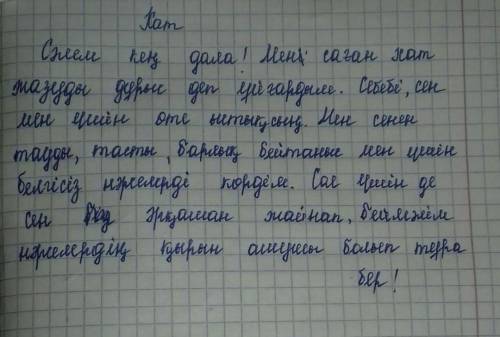 Хат
Сәлем кең дала! Мен саған хат
жазуды дұрыс деп ұйғардым. Себебі, сен
мен үшін өте ыстықсың. Мен сенен
тауды, тасты, барлық бейтаныс мен үшін
белгісіз нәрселерді көрдім. Сол үшін де
сен әрқашан жайнап,
нәрселердің қырын ашушы болып тұра
бер!